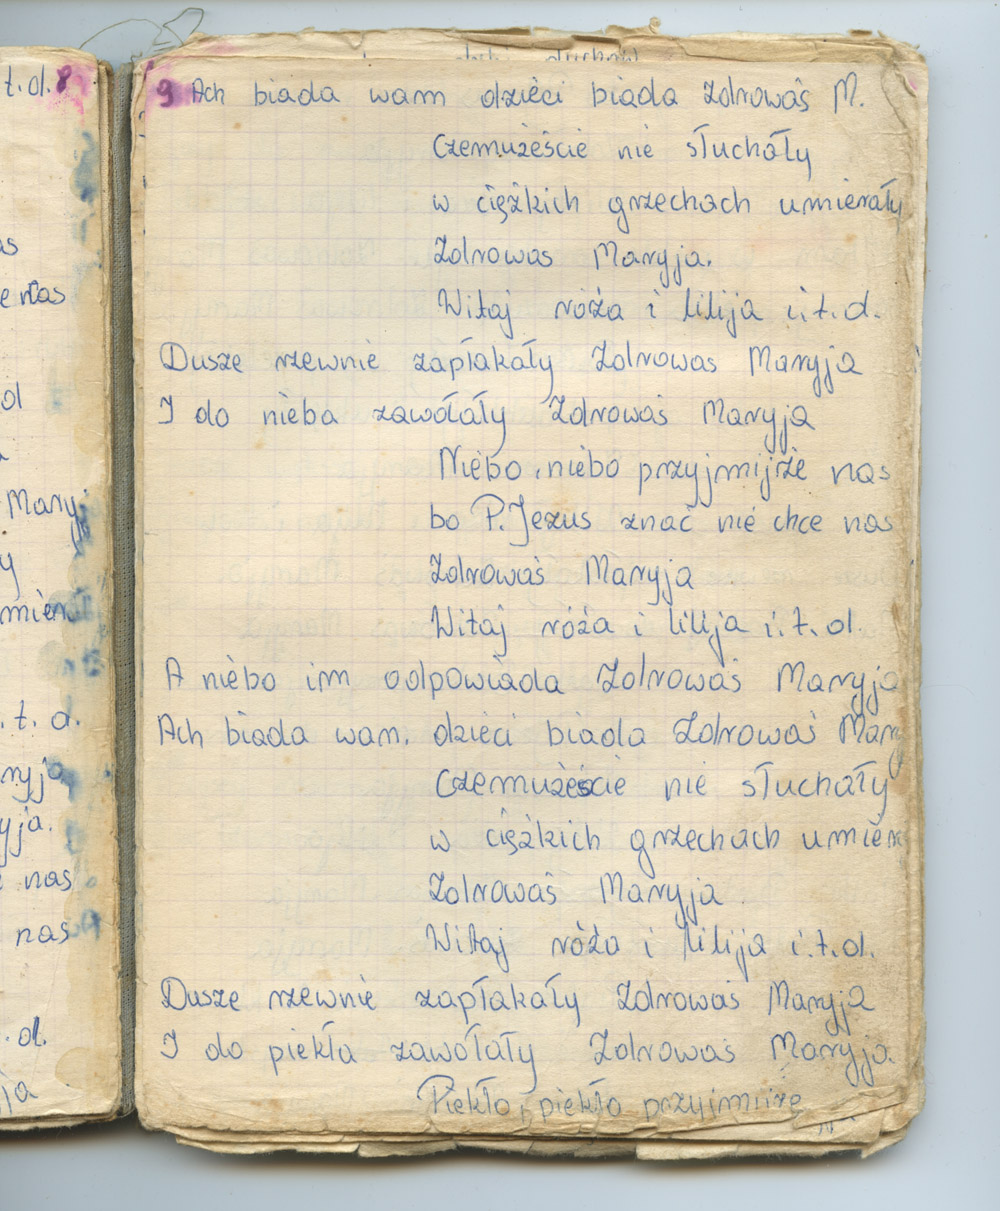 t.d. 8
as
e nas
ol
Maryj
y
umier
.t.d.
ryja
yja.
nas
nas
.d.
ja
duchów
9 Ach biada wam dzieci biada Zdrowaś M.
Czemużeście nie słuchały
w ciężkich grzechach umierały
Zdrowas Maryja.
Witaj róża i lilija i.t.d.
Dusze rzewnie zapłakały Zdrowas Maryja
I do nieba zawołały Zdrowaś Maryja
Niebo, niebo przyjmijże nas
bo P. Jezus znać nie chce nas
Zdrowaś Maryja
Witaj róża i lilija i.t.d.
A niebo im odpowiada Zdrowaś Maryja
Ach biada wam. dzieci biada Zdrowaś Mary
Czemużeście nie słuchały
w ciężkich grzechach umier
Zdrowaś Maryja
Witaj róża i lilija i.t.d.
Dusze rzewnie zapłakały Zdrowaś Maryja
I do piekła zawołały Zdrowaś Maryja.
Piekło, piekło przyjmijże